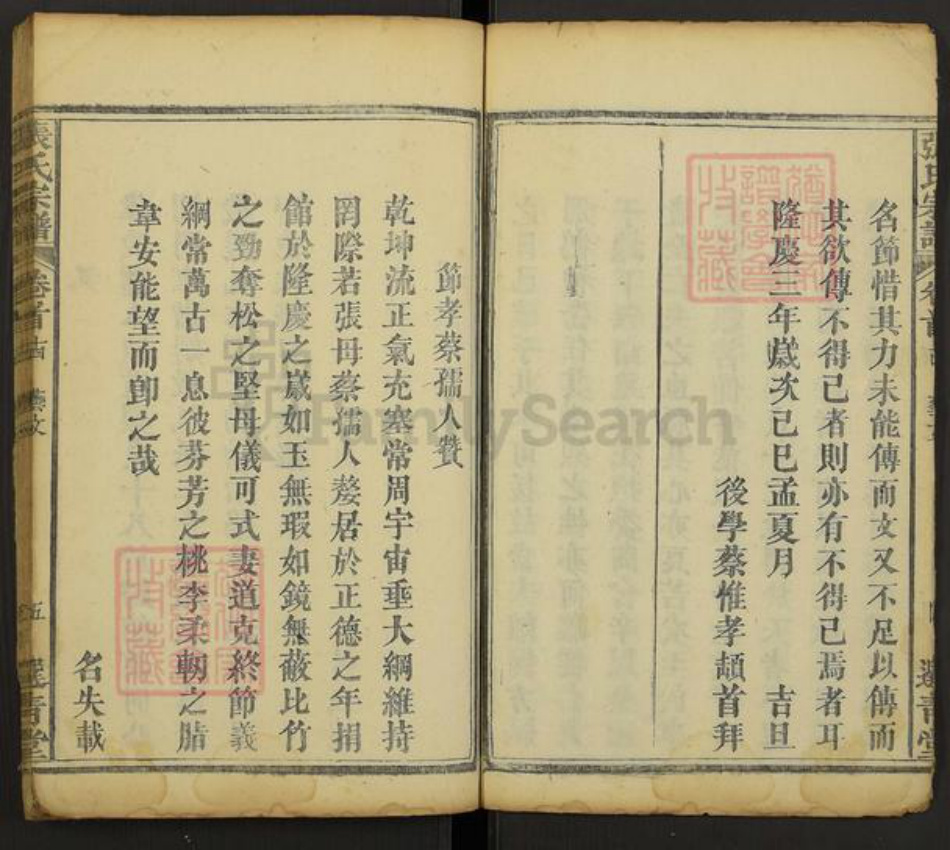 名節惜其力未能傳而文又不足以傳而
其欲傳不得已者則亦有不得已焉者耳
隆慶三年歲次己巳孟夏月 吉旦
後學蔡惟孝頡首拜
節孝蔡孺人贊
乾坤流正氣充塞常周宇宙垂大綱維持
罔際若張母蔡孺人嫠居於正德之年捐
館於隆慶之歲如玉無瑕如鏡無蔽比竹
之勁奪松之堅母儀可式妻道克終節義
綱常萬古一息彼芬芳之桃李柔軔之脂
韋安能望而卽之哉
名失載
張氏宗譜 卷首 藝文 五 選青堂
FamilySearch